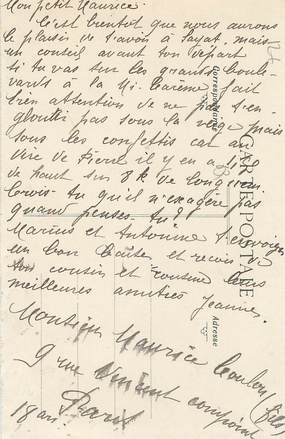 Mon petit Maurice.
C'est bientot que nous aurons
le plaisir de t'avoir à Sayat. mais
un conseil avant ton départ
si tu vas sur les grands boule-
vards à la Mi-Carème fait
bien attention de ne pas t'en-
gloutir pas sous la neige mais
sous les confettis car au
dire de Pierre il y en a 1m
de haut sur 8k de long
Crois-tu qu'il n'exagère pas
quand penses-tu?
Marius et Antonine t'envoient
un bon baiser et reçois de
ton cousin et cousine leurs
meilleures amitiés Jeanne.
Monsieur Maurice Coulon (fils)
9 rue Vincent compoint
18 arr. Paris
CARTE POSTALE
Correspondance
Adresse